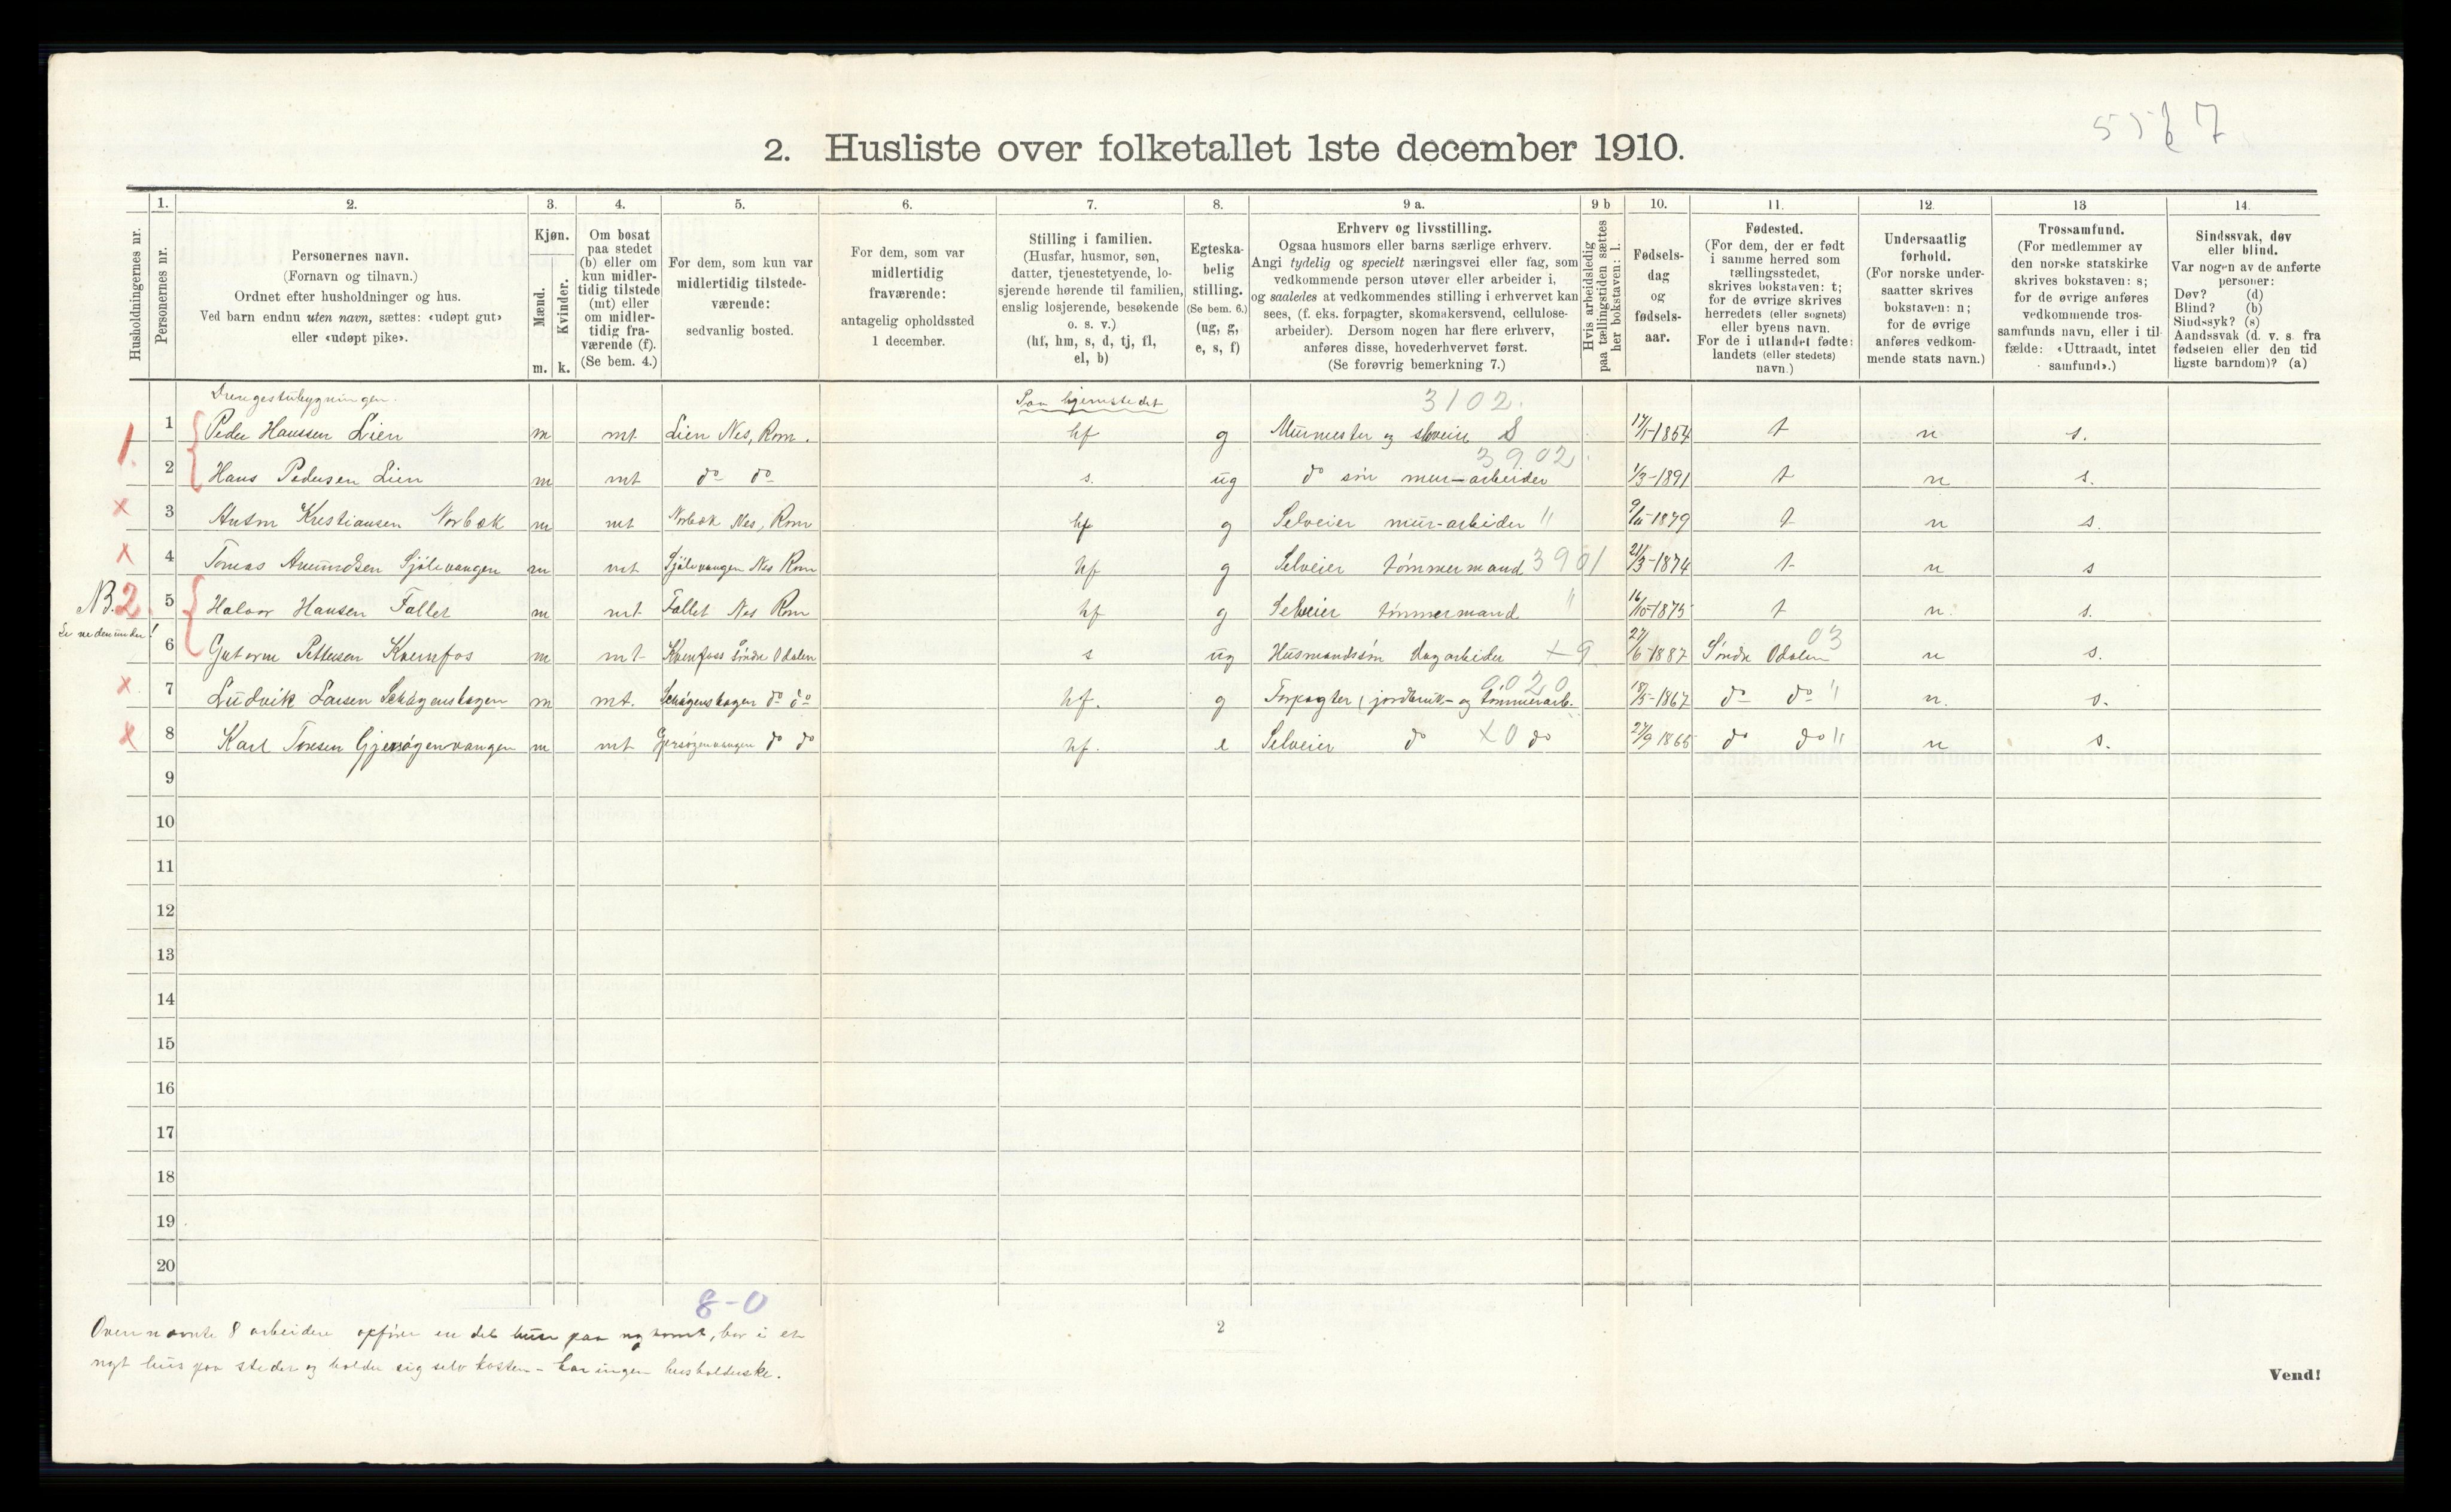 2. Husliste over folketallet 1ste december 1910.
Husholdningernes nr.
1.
Personernes nr.
2.
Personernes navn.
(Fornavn og tilnavn.)
Ordnet efter husholdninger og hus.
Ved barn endnu uten navn, sættes: «udøpt gut»
eller «udøpt pike».
3.
Kjøn.
Mænd.
Kvinder.
m. k.
4.
Om bosat
paa stedet
(b) eller om
kun midler-
tidig tilstede
(mt) eller
om midler-
tidig fra-
værende (f).
(Se bem. 4.)
5.
For dem, som kun var
midlertidig tilstede-
værende:
sedvanlig bosted.
6.
For dem, som var
midlertidig
fraværende:
antagelig opholdssted
1 december.
7.
Stilling i familien.
(Husfar, husmor, søn,
datter, tjenestetyende, lo-
sjerende hørende til familien,
enslig losjerende, besøkende
o. s. v.)
(hf, hm, s, d, tj, fl,
el, b)
8.
Egteska-
belig
stilling.
(Se bem. 6.)
(ug, g,
e, s, f)
9 a.
Erhverv og livsstilling.
Ogsaa husmors eller barns særlige erhverv.
Angi tydelig og specielt næringsvei eller fag, som
vedkommende person utøver eller arbeider i,
og saaledes at vedkommendes stilling i erhvervet kan
sees, (f. eks. forpagter, skomakersvend, cellulose-
arbeider). Dersom nogen har flere erhverv,
anføres disse, hovederhvervet først.
(Se forøvrig bemerkning 7.)
9 b
Hvis arbeidsledig
paa tællingstiden sættes
her bokstaven: l.
10.
Fødsels-
dag
og
fødsels-
aar.
11.
Fødested.
(For dem, der er født
i samme herred som
tællingsstedet,
skrives bokstaven: t;
for de øvrige skrives
herredets (eller sognets)
eller byens navn.
For de i utlandet fødte:
landets (eller stedets)
navn.)
12.
Undersaatlig
forhold.
(For norske under-
saatter skrives
bokstaven: n;
for de øvrige
anføres vedkom-
mende stats navn.)
13
Trossamfund.
(For medlemmer av
den norske statskirke
skrives bokstaven: s;
for de øvrige anføres
vedkommende tros-
samfunds navn, eller i til-
fælde: «Uttraadt, intet
samfund».)
14.
Sindssvak, døv
eller blind.
Var nogen av de anførte
personer:
Døv? (d)
Blind? (b)
Sindssyk? (s)
Aandssvak (d. v. s. fra
fødselen eller den tid
ligste barndom)? (a)
Drengestubygningen. Paa hjemstedet 3102.
1. 1 Peder Hanssen Lien m mt Lien Nes, Rom. hf g Murmester og selveier S 17/1-1854 t n s.
3902
2 Hans Pedersen Lien m mt do do s. ug do søn mur-arbeider 1/3-1891 t n s.
x 3 Anton Kristiansen Norbæk m mt Norbæk Nes, Rom hf g Selveier mur-arbeider " 9/11-1879 t n s.
x 4 Tomas Amundsen Sjølivangen m mt Sjølivangen Nes Rom hf g Selveier tømmermand 3901 21/3-1874 t n s
NB. 2. 5 Halvor Hansen Fallet m mt Fallet Nes Rom hf g Selveier tømmermand " 16/10-1875 t n. s.
Se nedenunder!
6 Guttorm Pettersen Kvernfos m mt Kvernfoss Søndre Odalen s ug Husmandssøn Dagarbeider x9 27/6-1887 Søndre Odalen 03 n s.
0020
x 7 Ludvik Larsen m mt. do do hf. g Forpagter (jordbruk- og tømmerarb. 18/5-1867 do do " n. s.
x 8 Karl Tonsen Gjersøgenvangen m mt Gjersøgenvangen do do hf. e Selveier do x0 do 27/9 1865 do do " n s.
9
10
11
12
13
14
15
16
17
18
19
20
8-0
Ovennævnte 8 arbeidere opfører en del huse paa nytomt, bor i et
nyt hus paa stedet og holder sig selv kosten - har ingen husholderske.
2
Vend!